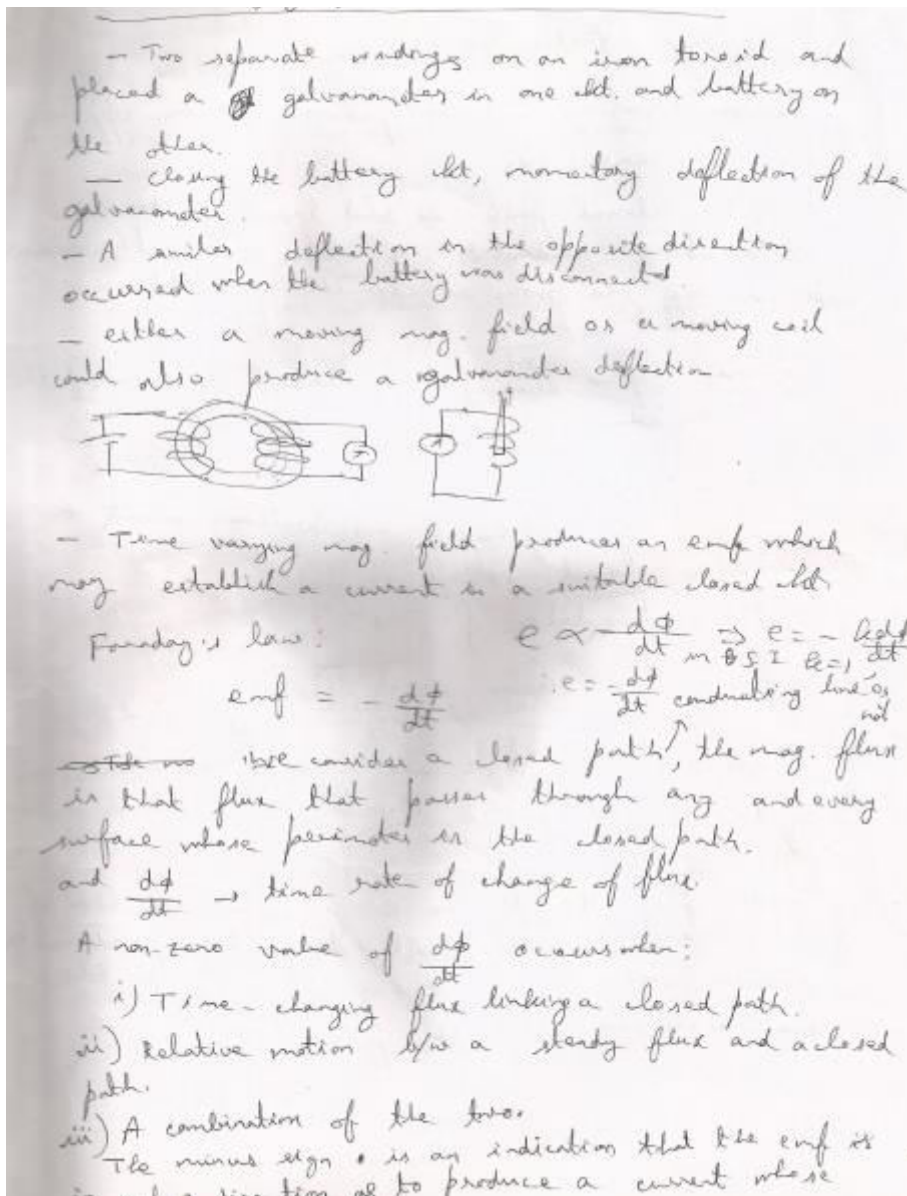 - Two separate windings on an iron toroid and
placed a galvanometer in one ckt. and battery on
the other.
- closing the battery ckt, momentary deflection of the
galvanometer.
- A similar deflection in the opposite direction
occurred when the battery was disconnected
- either a moving mag. field or a moving coil
could also produce a galvanometer deflection
- Time varying mag. field produces an emf which
may establish a current in a suitable closed ckt.
Faraday's law: e ∝ -dφ/dt ⇒ e = - k dφ/dt
in S I k=1
emf = - dφ/dt ∴ e = -dφ/dt conducting line or
not
we consider a closed path, the mag. flux
is that flux that passes through any and every
surface whose perimeter is the closed path.
and dφ/dt → time rate of change of flux.
A non-zero value of dφ/dt occurs when:
i) Time-changing flux linking a closed path.
ii) Relative motion b/w a steady flux and a closed
path.
iii) A combination of the two.
The minus sign is an indication that the emf is
in direction as to produce a current whose